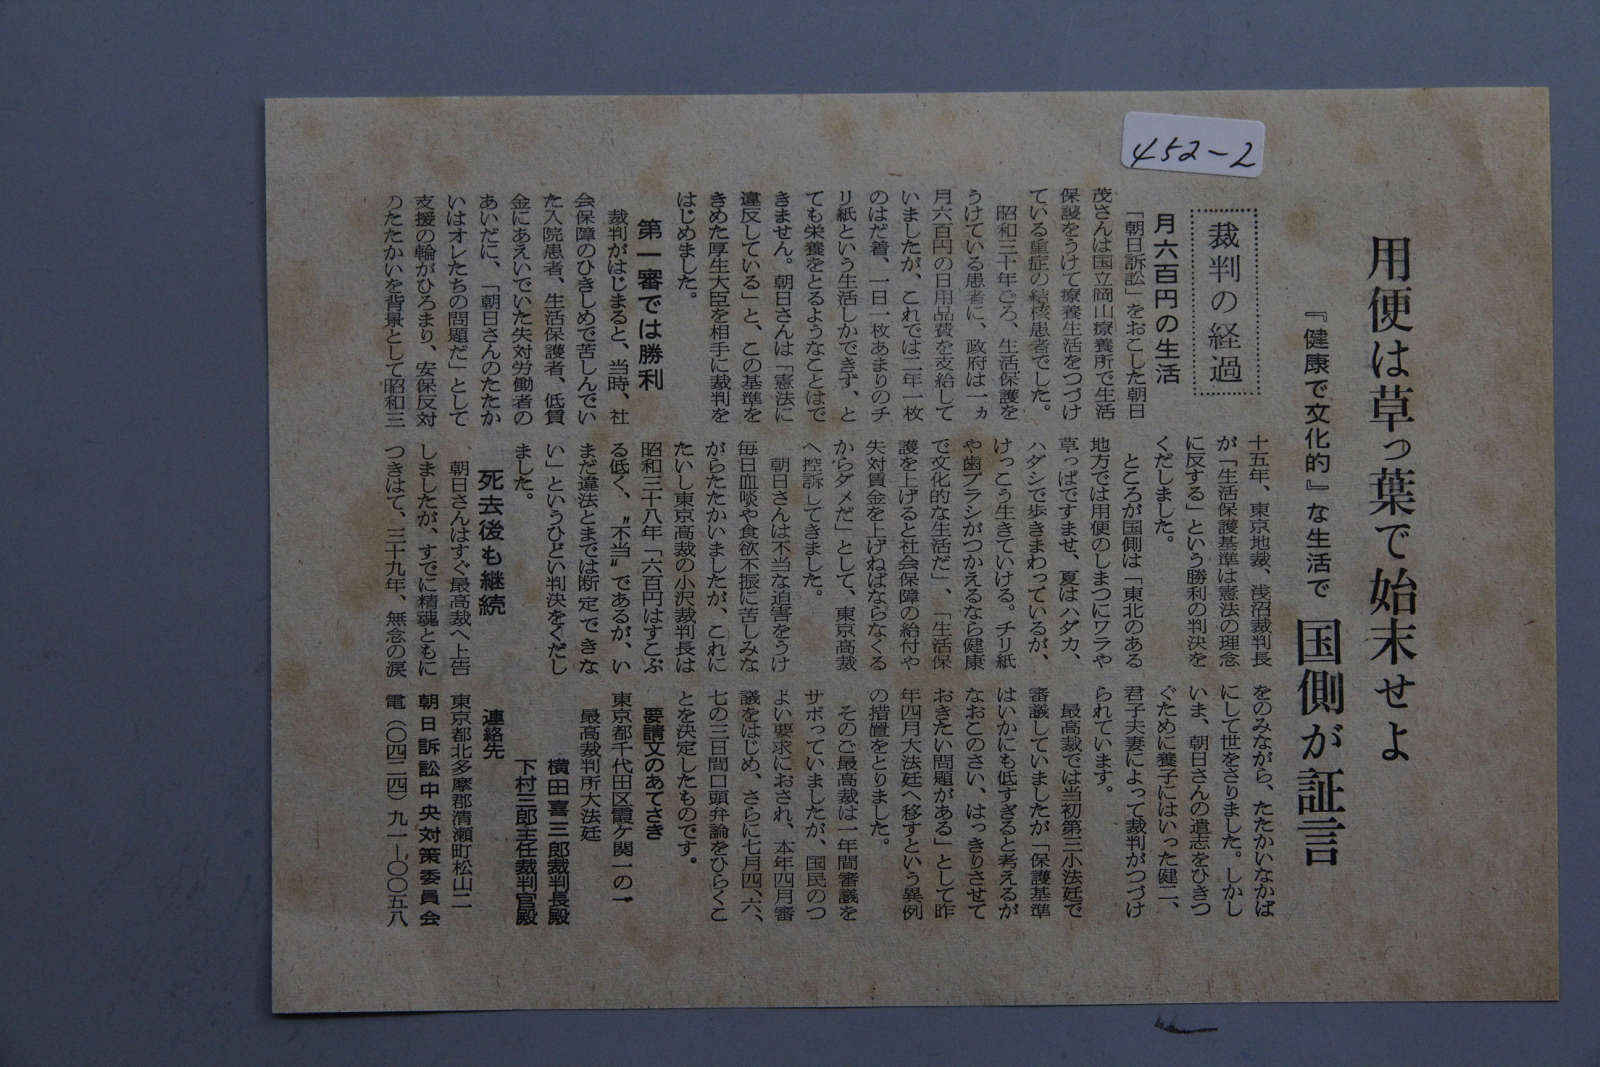 452-2
用便は草っ葉で始末せよ
『健康で文化的』な生活で 国側が証言
裁判の経過
月六百円の生活
「朝日訴訟」をおこした朝日
茂さんは国立岡山療養所で生活
保護をうけて療養生活をつづけ
ている重症の結核患者でした。
昭和三十年ごろ、生活保護を
うけている患者に、政府は一ヵ
月六百円の日用品費を支給して
いましたが、これでは二年一枚
のはだ着、一日一枚あまりのチ
リ紙という生活しかできず、と
ても栄養をとるようなことはで
きません。朝日さんは「憲法に
違反している」と、この基準を
きめた厚生大臣を相手に裁判を
はじめました。
第一審では勝利
裁判がはじまると、当時、社
会保障のひきしめで苦しんでい
た入院患者、生活保護者、低賃
金にあえいでいた失対労働者の
あいだに、「朝日さんのたたか
いはオレたちの問題だ」として
支援の輪がひろまり、安保反対
のたたかいを背景として昭和三
十五年、東京地裁、浅沼裁判長
が「生活保護基準は憲法の理念
に反する」という勝利の判決を
くだしました。
ところが国側は「東北のある
地方では用便のしまつにワラや
草っぱですませ、夏はハダカ、
ハダシで歩きまわっているが、
けっこう生きていける。チリ紙
や歯ブラシがつかえるなら健康
で文化的な生活だ」、「生活保
護を上げると社会保障の給付や
失対賃金を上げねばならなくる
からダメだ」として、東京高裁
へ控訴してきました。
朝日さんは不当な迫害をうけ
毎日血啖や食欲不振に苦しみな
がらたたかいましたが、これに
たいし東京高裁の小沢裁判長は
昭和三十八年「六百円はすこぶ
る低く、〝不当〟であるが、い
まだ違法とまでは断定できな
い」というひどい判決をくだし
ました。
死去後も継続
朝日さんはすぐ最高裁へ上告
しましたが、すでに精魂ともに
つきはて、三十九年、無念の涙
をのみながら、たたかいなかば
にして世をさりました。しかし
いま、朝日さんの遺志をひきつ
ぐために養子にはいった健二、
君子夫妻によって裁判がつづけ
られています。
最高裁では当初第三小法廷で
審議していましたが「保護基準
はいかにも低すぎると考えるが
なおこのさい、はっきりさせて
おきたい問題がある」として昨
年四月大法廷へ移すという異例
の措置をとりました。
そのご最高裁は一年間審議を
サボっていましたが、国民のつ
よい要求におされ、本年四月審
議をはじめ、さらに七月四、六、
七の三日間口頭弁論をひらくこ
とを決定したものです。
要請文のあてさき
東京都千代田区霞ケ関一の一
最高裁判所大法廷
横田喜三郎裁判長殿
下村三郎主任裁判官殿
連絡先
東京都北多摩郡清瀬町松山二
朝日訴訟中央対策委員会
電（〇四二四）九一―〇〇五八